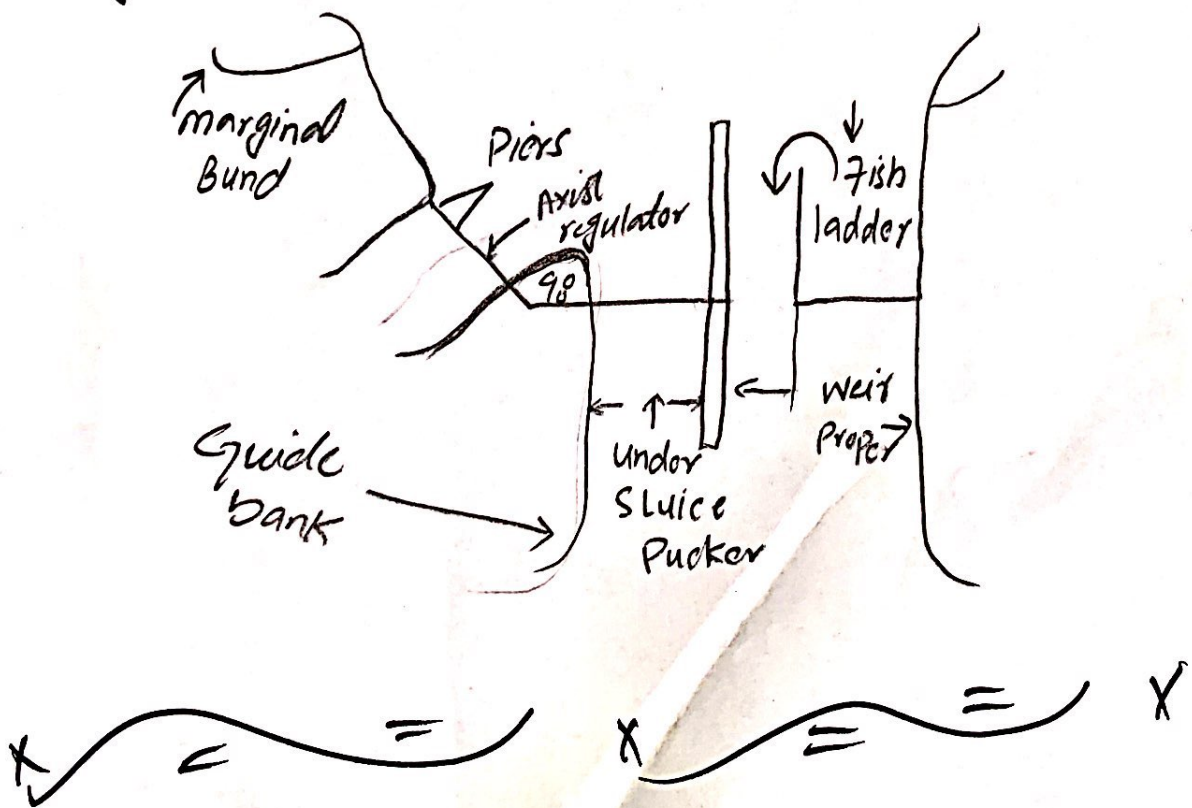 marginal
Bund
Piers
Axist
regulator
90
Fish
ladder
Guide
bank
Under
Sluice
Pucker
Weir
Proper